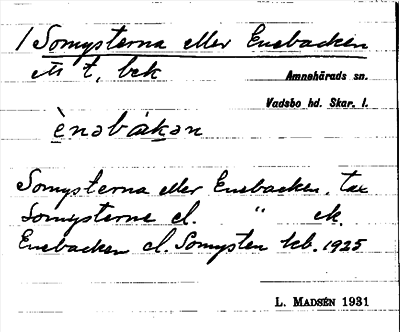 1 Somysterna eller Enebacken
ett t, bek
Amnehärads sn.
Vadsbo hd. Skar. l.
è̱nəbáḵən
Somysterna eller Enebacken. tax
Somysterne el. " ek.
Enebacken el. Somysten kb. 1925
L. MADSÉN 1931